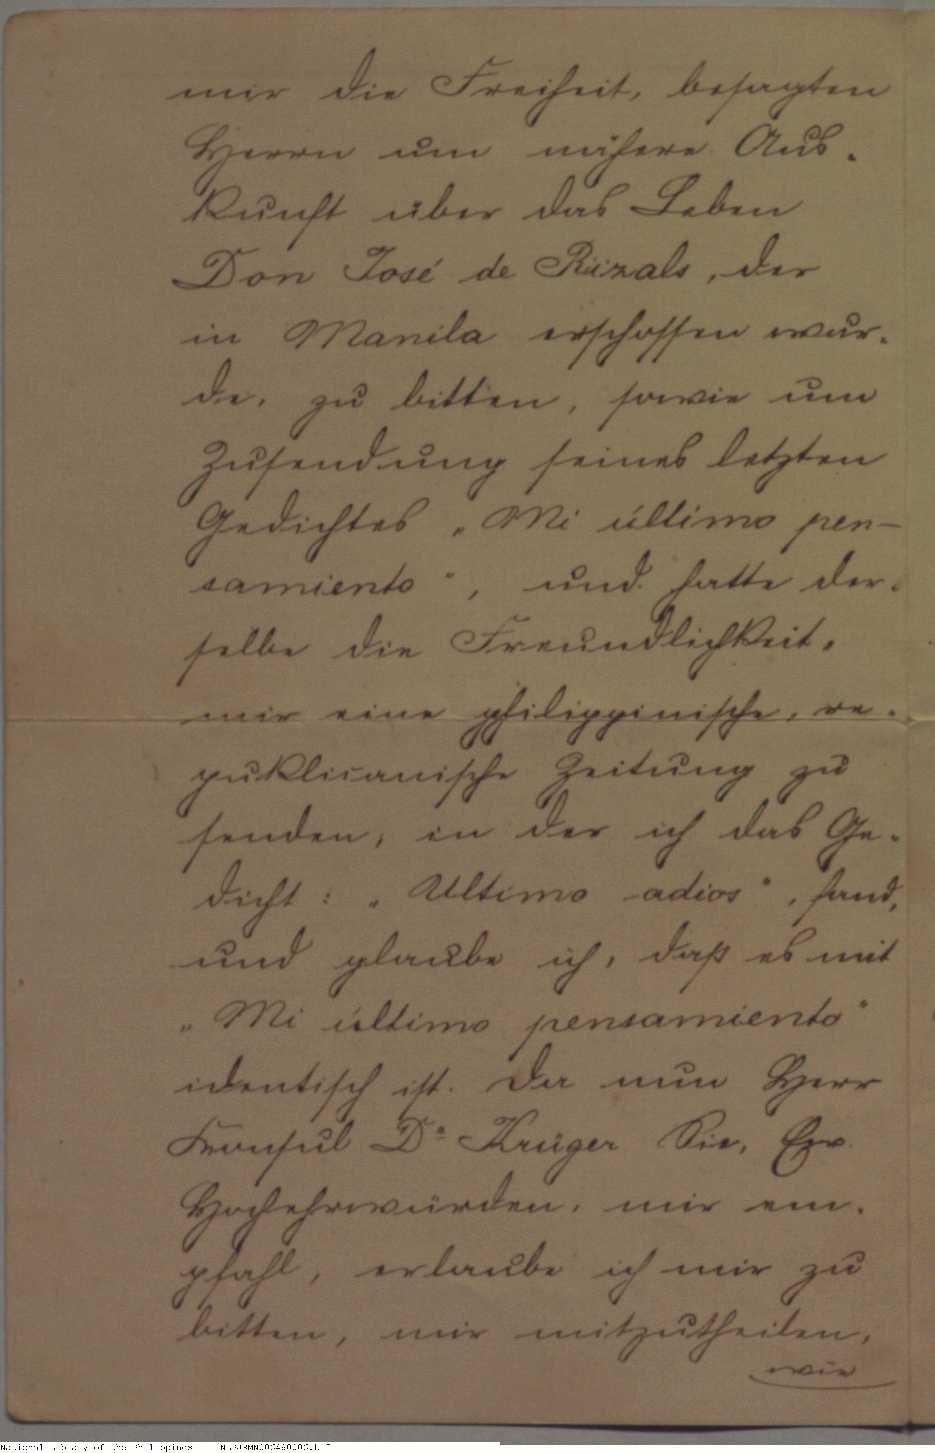 mir die Freiheit, besagten
Herrn um nähere Aus-
kunft über das Leben
Don José de Rizals, der
in Manila erschossen wur-
de, zu bitten, sowie um
Zusendung seines letzten
Gedichtes „Mi último pen-
samiento“, und hatte der-
selbe die Freundlichkeit,
mir eine philippinische, re-
puklicanische Zeitung zu
senden, in der ich das Ge-
dicht: „Ultimo adios“, fand,
und glaube ich, daß es mit
„Mi último pensamiento“
identisch ist. Da nun Herr
Konsul Dr Krüger Sie, Ew.
Hochehrwürden, mir em-
pfahl, erlaube ich mir zu
bitten, mir mitzutheilen,
wie
National Library of the Philippines